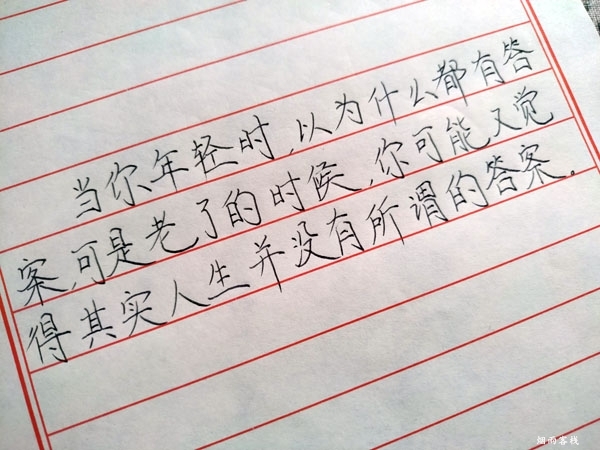 当你年轻时,以为什么都有答
案,可是老了的时候,你可能又觉
得其实人生并没有所谓的答案。
烟雨客栈